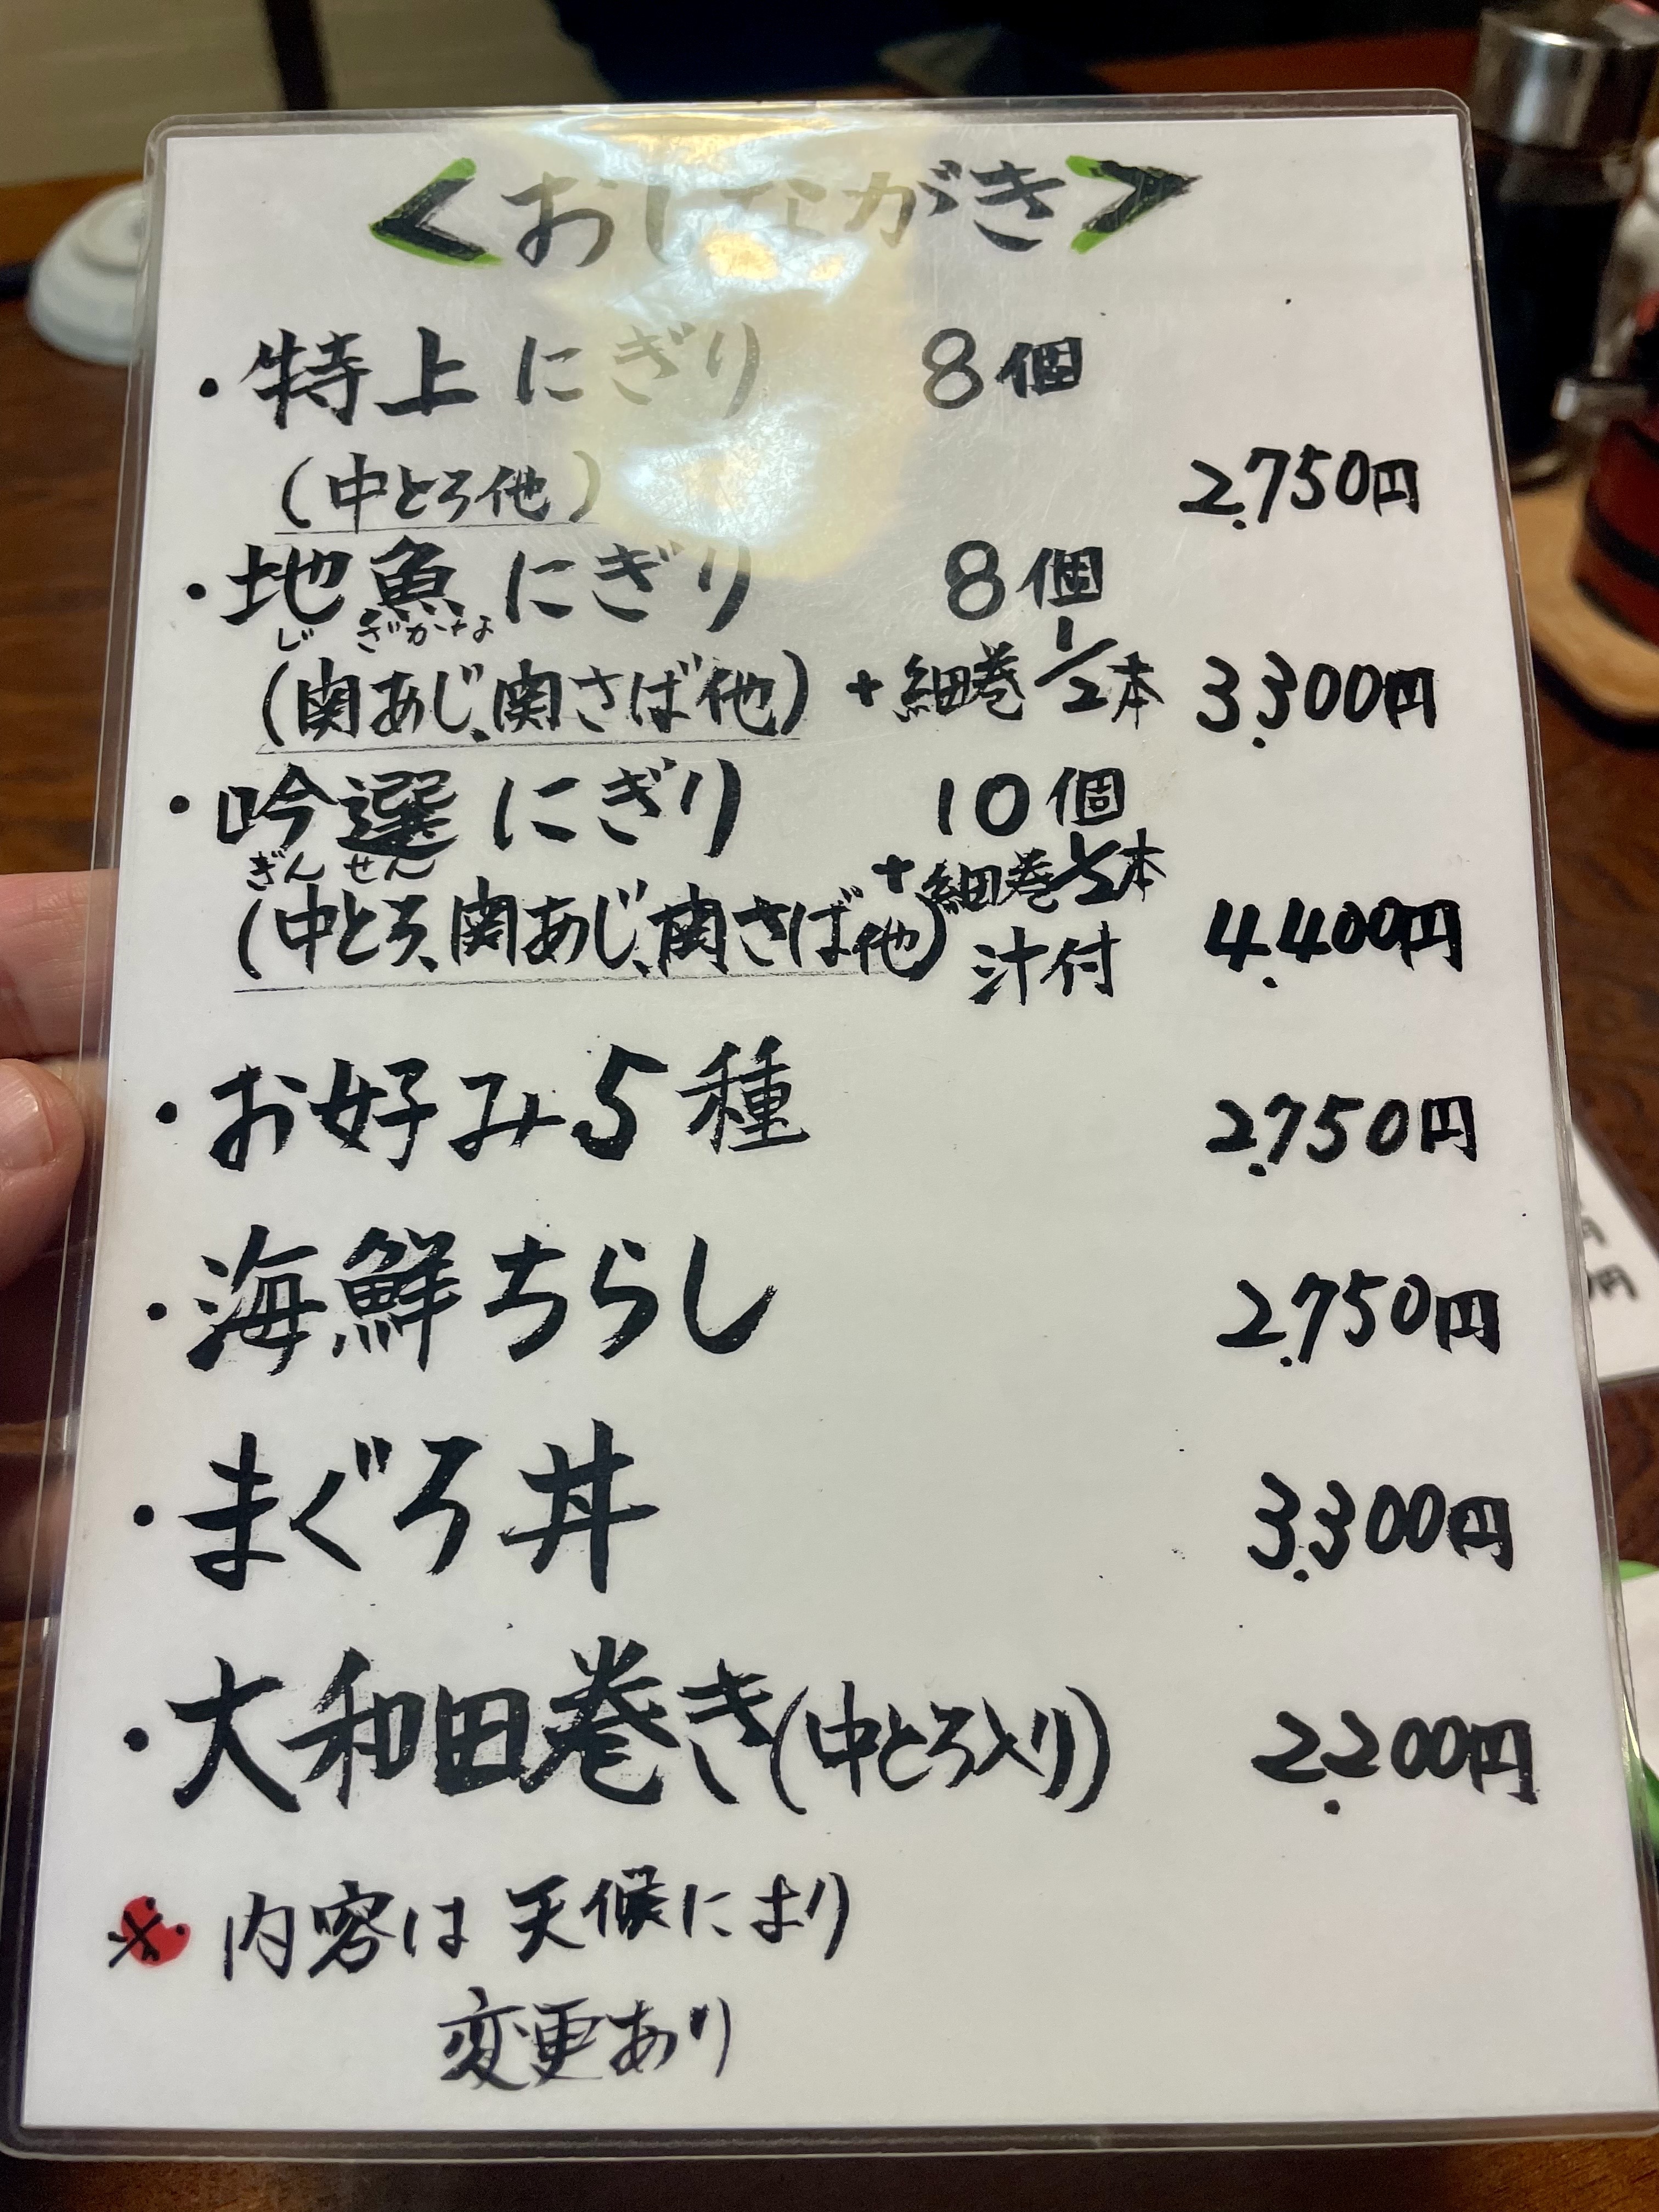 <おしながき>
・特上にぎり 8個
(中とろ他) 2,750円
・地魚にぎり 8個
じざかな
(関あじ、関さば他) +細巻1/2本 3,300円
・吟選にぎり 10個
ぎんせん +細巻1/2本
(中とろ、関あじ、関さば他) 汁付 4,400円
・お好み5種 2,750円
・海鮮ちらし 2,750円
・まぐろ丼 3,300円
・大和田巻き(中とろ入り) 2,200円
※内容は天候により
変更あり